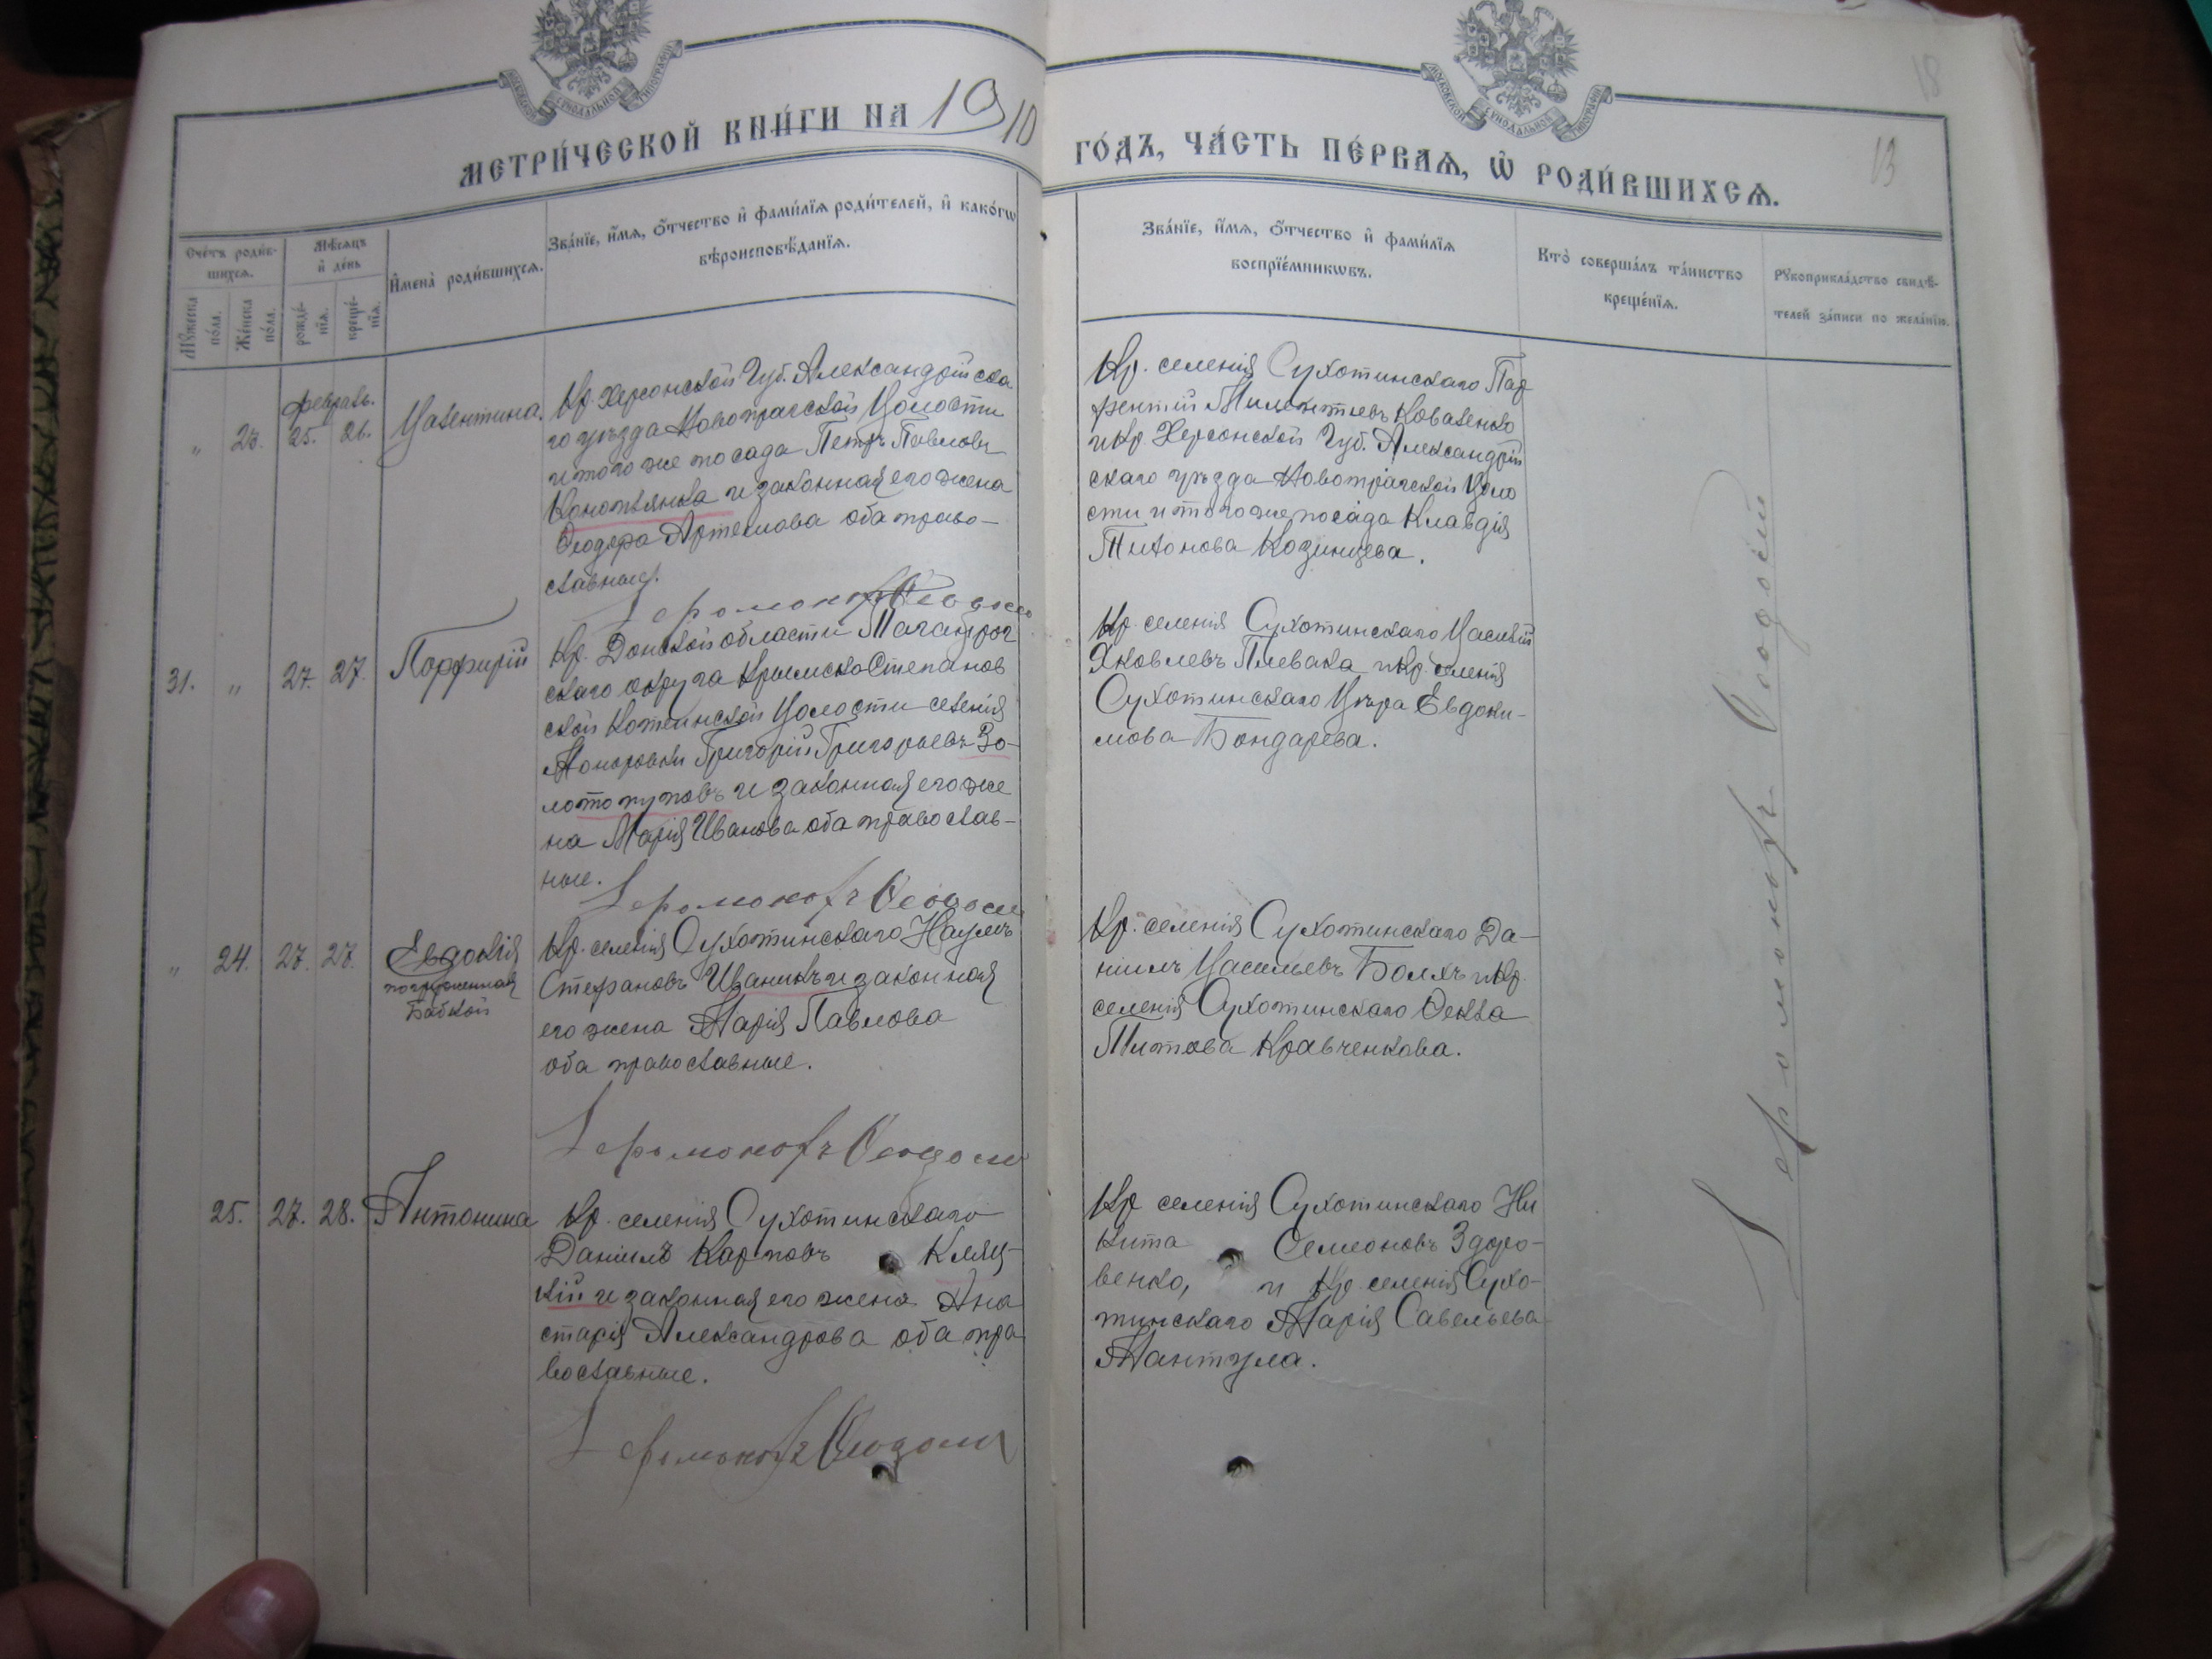 МЕТРИ́ЧЕСКОЙ КНИ́ГИ НА 1910
ГО́ДЪ, ЧА́СТЬ ПЕ́РВАѦ, Ѡ҆ РОДИ́ВШИХСѦ.
МОСКОВСКОЙ СѴНОДАЛЬНОЙ ТИПОГРАФІИ
МОСКОВСКОЙ СѴНОДАЛЬНОЙ ТИПОГРАФІИ
18
13
Сче́тъ роди́в-
шихсѧ.
Мꙋ́жеска
по́ла.
Же́нска
по́ла.
Мѣ́сѧцъ
и҆ де́нь
рожде́-
нїѧ.
креще́-
нїѧ.
И҆мена̀ роди́вшихсѧ.
Зва́нїе, и҆́мѧ, ѻ҆́тчество и҆ фами́лїѧ роди́телей, и҆ како́гѡ
вѣроисповѣ́данїѧ.
Зва́нїе, и҆́мѧ, ѻ҆́тчество и҆ фами́лїѧ
воспрїе́мникѡвъ.
Кто̀ соверша́лъ та́инство
креще́нїѧ.
Рꙋкоприкла́дство свидѣ́-
телей за́писи по жела́нїю.
Февраль.
„ 23. 25. 26. Валентина.
Кр. Херсонской Губ. Александрійска
го уѣзда Новопражской Волости
и того же посада Петръ Павловъ
Коноплянка и законная его жена
Ѳеодора Артемова оба право-
славные.
Іеромонахъ Ѳеодосій
Кр. селенія Сухотинскаго Пар
фентій Милентіевъ Коваленко
и кр. Херсонской Губ. Александрій
скаго уѣзда Новопражской Воло
сти и того же посада Клавдія
Тихонова Козинцева.
31. „ 27. 27. Порфирій
Кр. Донской области Таганрог
скаго округа Крымско
ской Волости селенія
Григорій Григорьевъ Зо-
лотопуповъ и законная его же
на Марія Иванова оба православ-
ные.
Іеромонахъ Ѳеодосій
Кр. селенія Сухотинскаго Василій
Яковлевъ Плевака и кр. селенія
Сухотинскаго Вѣра Евдоки-
мова Бондарева.
„ 24. 27. 27. Евдокія
погруженная
Бабкой
Кр. селенія Сухотинскаго Наумъ
Стефановъ Иваникъ и законная
его жена Марія Павлова
оба православные.
Іеромонахъ Ѳеодосій
Кр. селенія Сухотинскаго Да-
ніилъ Васильевъ Боляхъ и кр.
селенія Сухотинскаго Ѳекла
Титова Кравченкова.
25. 27. 28. Антонина
Кр. селенія Сухотинскаго
Даніилъ Карповъ Кляц-
кій и законная его жена Ана
стасія Александрова оба пра
вославные.
Іеромонахъ Ѳеодосій
Кр селенія Сухотинскаго Ни
кита Семеоновъ Здоро-
венко, и кр. селенія Сухо-
тинскаго Марія Савельева
Мантула.
Іеромонахъ Ѳеодосій